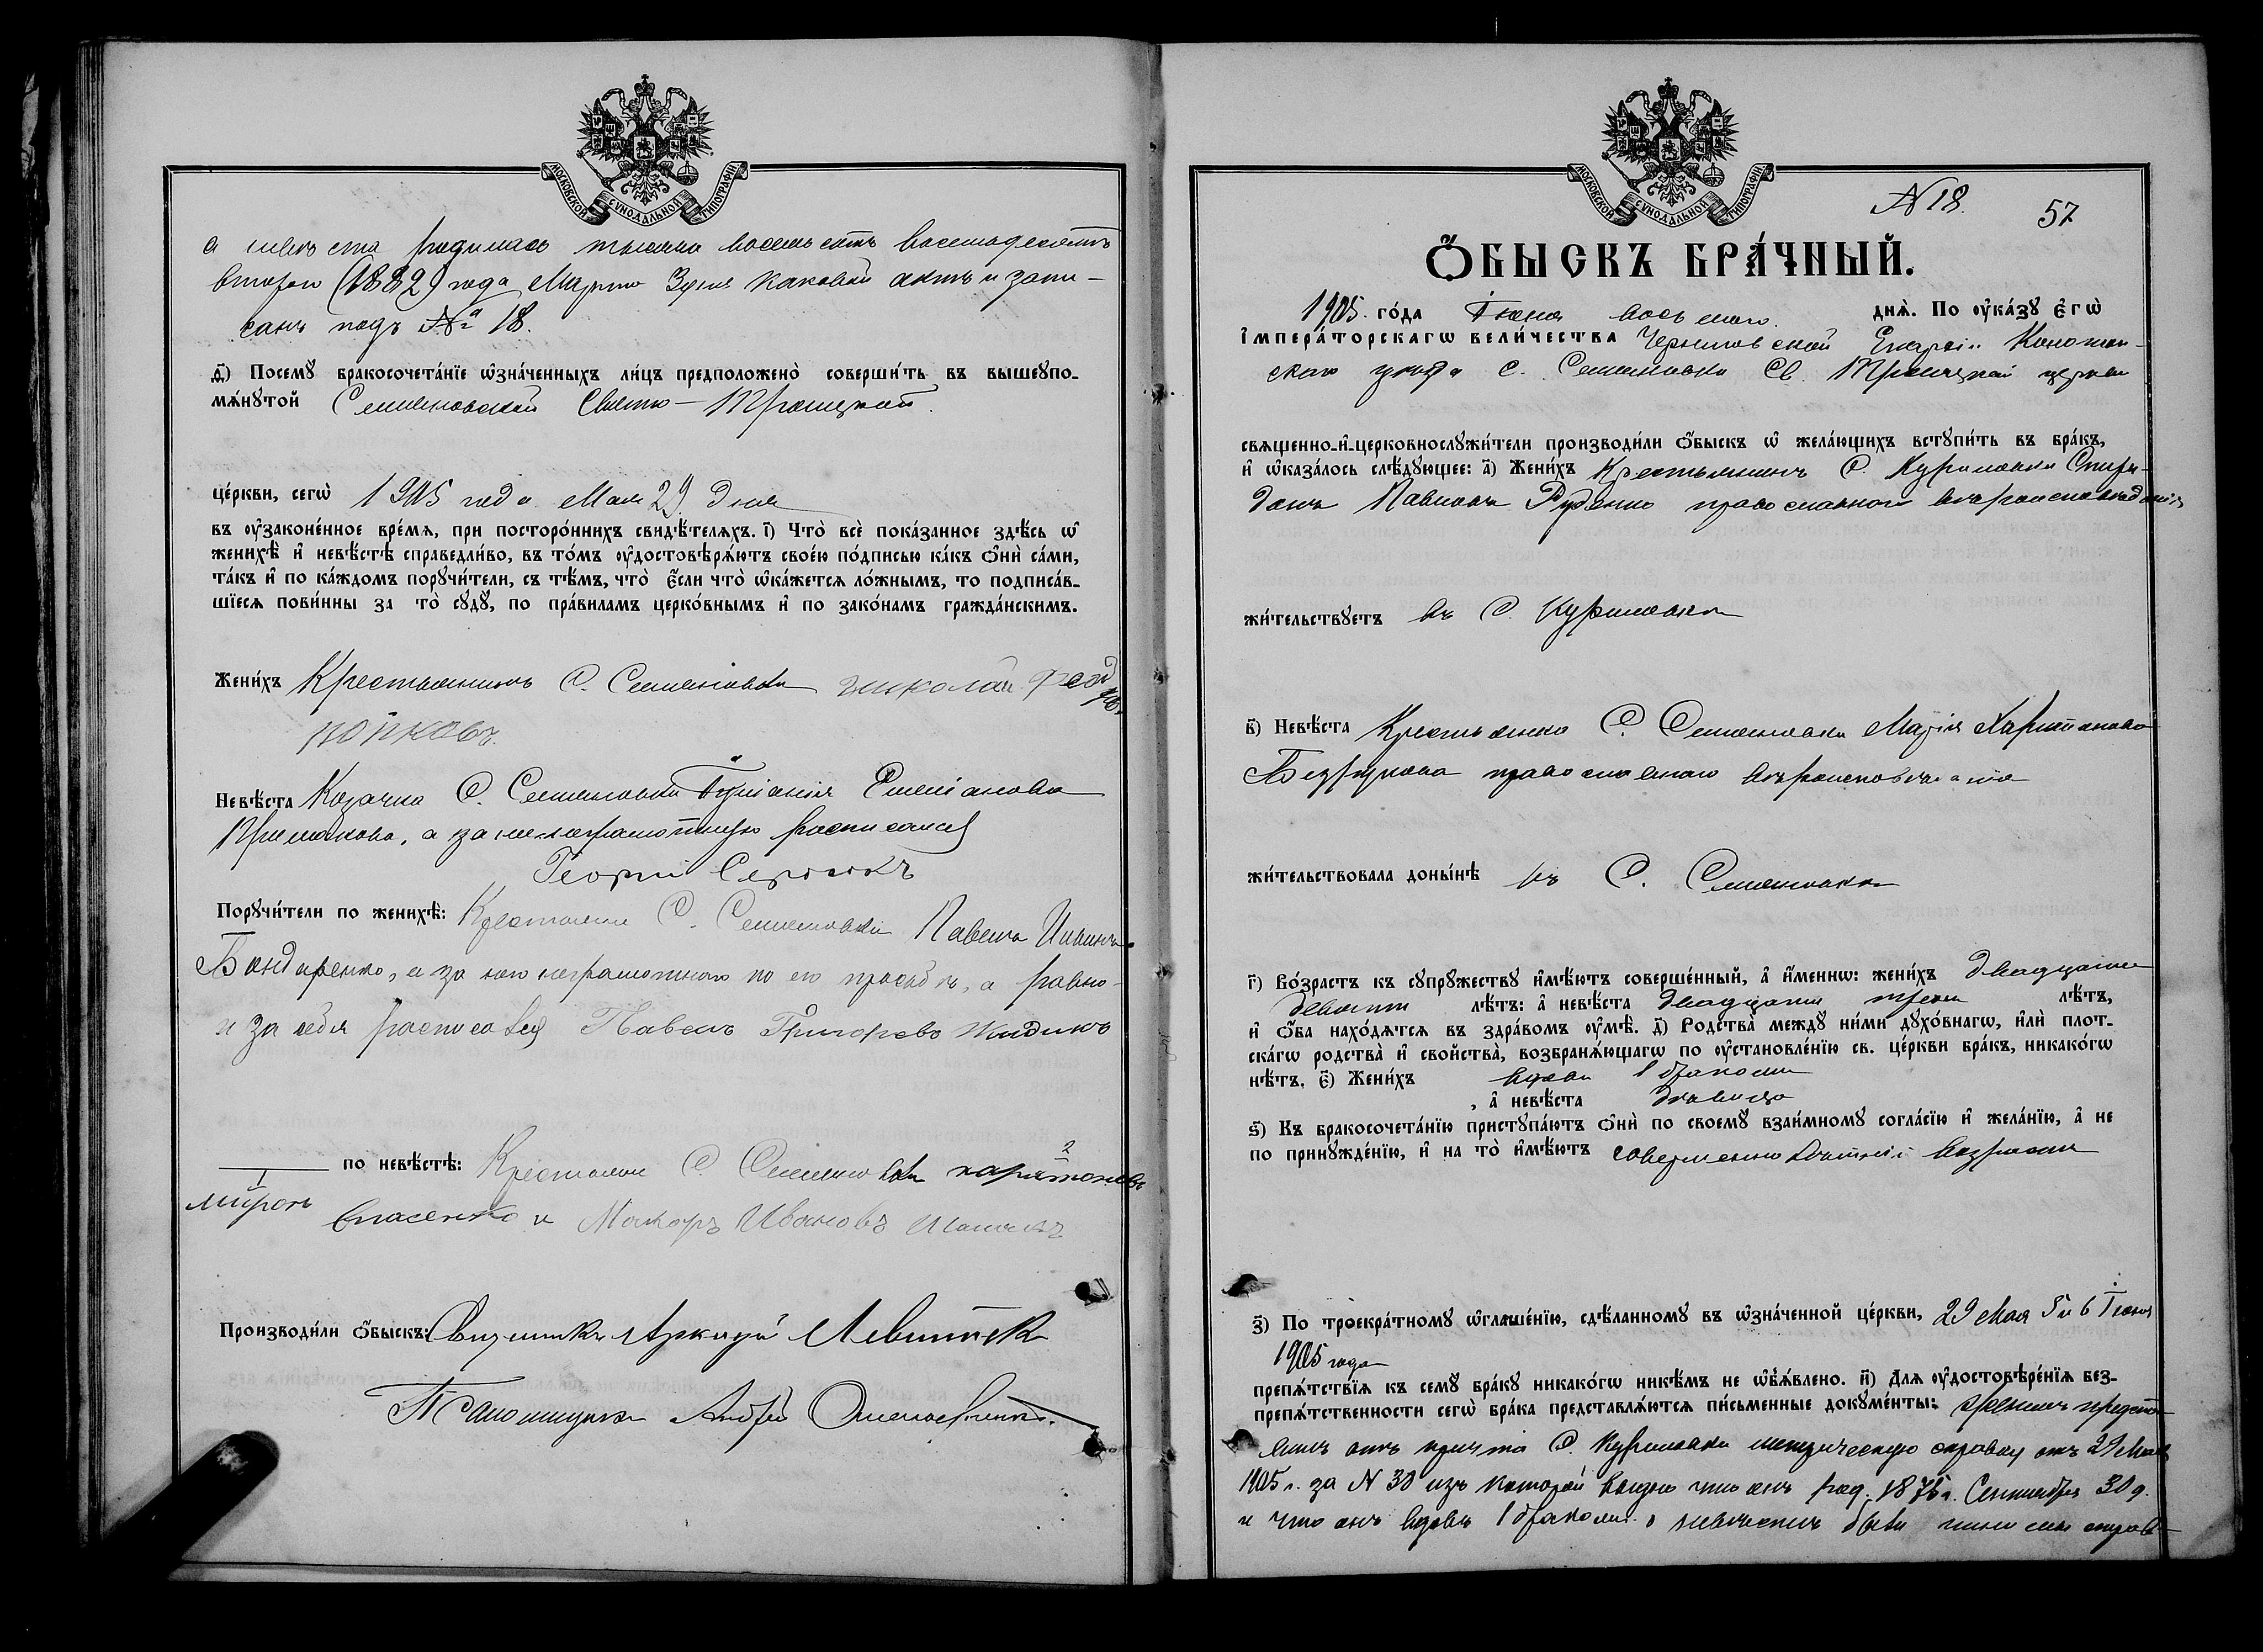 МОСКОВСКОЙ СѴНОДАЛЬНОЙ ТИПОГРАФІИ
а невѣста родилась тысяча восемьсотъ восемьдесятъ
второго (1882) года Марта 3 дня каковой актъ и запи-
санъ подъ № 18.
д҃) Посемꙋ бракосочета́нїе ѡ҆зна́ченныхъ ли́цъ предположено̀ соверши́ть въ вышеупо-
мѧ́нꙋтой Семеновской Свято-Троицкой
це́ркви, сегѡ̀ 1905 года Мая 29 дня
въ ᲂу҆зако́ненное вре́мѧ, при посторо́ннихъ свидѣ́телѧхъ. і҃) Что̀ всѐ пока́занное здѣ́сь ѡ҆
женихѣ̀ и҆ невѣ́стѣ справедли́во, въ то́мъ ᲂу҆достовѣрѧ́ютъ свое́ю по́дписью ка́къ ѻ҆нѝ са́ми,
та́къ и҆ по ка́ждомъ порꙋчи́тели, съ тѣ́мъ, что̀ є҆́сли что̀ ѡ҆ка́жетсѧ ло́жнымъ, то подписа́в-
шїесѧ пови́нны за то̀ сꙋдꙋ̀, по пра́виламъ церко́внымъ и҆ по зако́намъ гражда́нскимъ.
Жени́хъ Крестьянинъ С. Семеновки николай Федоровъ
пойковъ
Невѣ́ста Козачка С. Семеновки
а за неграмотную росписался
Георгій
Порꙋчи́тели по женихѣ̀: Крестьяне С. Семеновки Павелъ Ивановъ
Бондаренко, а за него неграмотного по его просьбѣ, а равно
и за себя росписался Павелъ Григорьевъ Жидикъ
по невѣ́стѣ: Крестьяне С. Семеновки харитоновъ
2
1
миронъ Власенко и Макаръ Ивановъ
Производи́ли ѻ҆́быскъ: Священникъ Аркадій Левитскій
Псаломщикъ Андрей
МОСКОВСКОЙ СѴНОДАЛЬНОЙ ТИПОГРАФІИ
N 18. 57
Ѻ҆́БЫСКЪ БРА́ЧНЫЙ.
1905. го́да Іюня восьмаго. днѧ̀. По ᲂу҆ка́зꙋ є҆гѡ̀
і҆мпера́торскагѡ вели́чества Черниговской Епархіи Конотоп-
скаго уѣзда с. Семеновки Св. Троицкой церкви
свѧщенно-и҆-церковнослꙋжи́тели производи́ли ѻ҆́быскъ ѡ҆ жела́ющихъ встꙋпи́ть въ бра́къ,
и҆ ѡ҆каза́лось слѣ́дꙋющее: а҃) Жени́хъ Крестьянинъ С. Куриловки Спири-
донъ Павловъ Руденко православного вѣроисповѣданія
жи́тельствꙋетъ въ С. Куриловки
в҃) Невѣ́ста Крестьянка С. Семеновки Марія Харитонова
православного вѣроисповѣданія
жи́тельствовала доны́нѣ въ С. Семеновки
г҃) Во́зрастъ къ сꙋпрꙋ́жествꙋ и҆мѣ́ютъ соверше́нный, а҆ и҆́менно: жени́хъ двадцати
девяти лѣ́тъ: а҆ невѣ́ста двадцати трехъ лѣ́тъ,
и҆ ѻ҆́ба нахо́дѧтсѧ въ здра́вомъ ᲂу҆мѣ̀. д҃) Родства̀ междꙋ̀ ни́ми дꙋхо́внагѡ, и҆лѝ плот-
ска́гѡ родства̀ и҆ сво́йства̀, возбранѧ́ющагѡ по ᲂу҆становле́нїю св. це́ркви бра́къ, никако́гѡ
нѣ́тъ. є҃) Жени́хъ вдовъ 1 бракомъ
, а҆ невѣ́ста дѣвица
ѕ҃) Къ бракосочета́нїю пристꙋпа́ютъ ѻ҆нѝ по своемꙋ̀ взаи́мномꙋ согла́сїю и҆ жела́нїю, а҆ не
по принꙋжде́нїю, и҆ на то̀ и҆мѣ́ютъ совершеннолѣтній возрастъ
з҃) По троекра́тномꙋ ѡ҆глаше́нїю, сдѣ́ланномꙋ въ ѡ҆зна́ченной це́ркви, 29 Мая 5 и 6 Іюня
1905 года
препѧ́тствїѧ къ семꙋ̀ бра́кꙋ никако́гѡ никѣ́мъ не ѡ҆б̾ѧ́влено. и҃) Длѧ ᲂу҆достовѣре́нїѧ без-
препѧ́тственности сегѡ̀ бра́ка представлѧ́ютсѧ пи́сьменные докꙋме́нты: Женихъ предста-
вилъ отъ причта С. Куриловки метрическую справку отъ 29 Мая
1905 г. за N 30 изъ которой видно что онъ род. 1875 г. Сентября 30 д.
и что онъ вдовъ 1 бракомъ